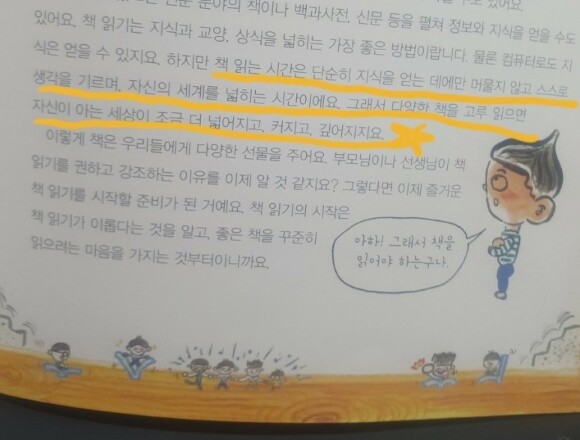 분야의 책이나 백과사전, 신문 등을 펼쳐 정보와 지식을 얻을 수도
있어요. 책 읽기는 지식과 교양, 상식을 넓히는 가장 좋은 방법이랍니다. 물론 컴퓨터로도 지
식은 얻을 수 있지요. 하지만 책 읽는 시간은 단순히 지식을 얻는 데에만 머물지 않고 스스로
생각을 기르며, 자신의 세계를 넓히는 시간이에요. 그래서 다양한 책을 고루 읽으면
자신이 아는 세상이 조금 더 넓어지고, 커지고, 깊어지지요.
이렇게 책은 우리들에게 다양한 선물을 주어요. 부모님이나 선생님이 책
읽기를 권하고 강조하는 이유를 이제 알 것 같지요? 그렇다면 이제 즐거운
책 읽기를 시작할 준비가 된 거예요. 책 읽기의 시작은
책 읽기가 이롭다는 것을 알고, 좋은 책을 꾸준히
읽으려는 마음을 가지는 것부터이니까요.
아하! 그래서 책을
읽어야 하는구나.